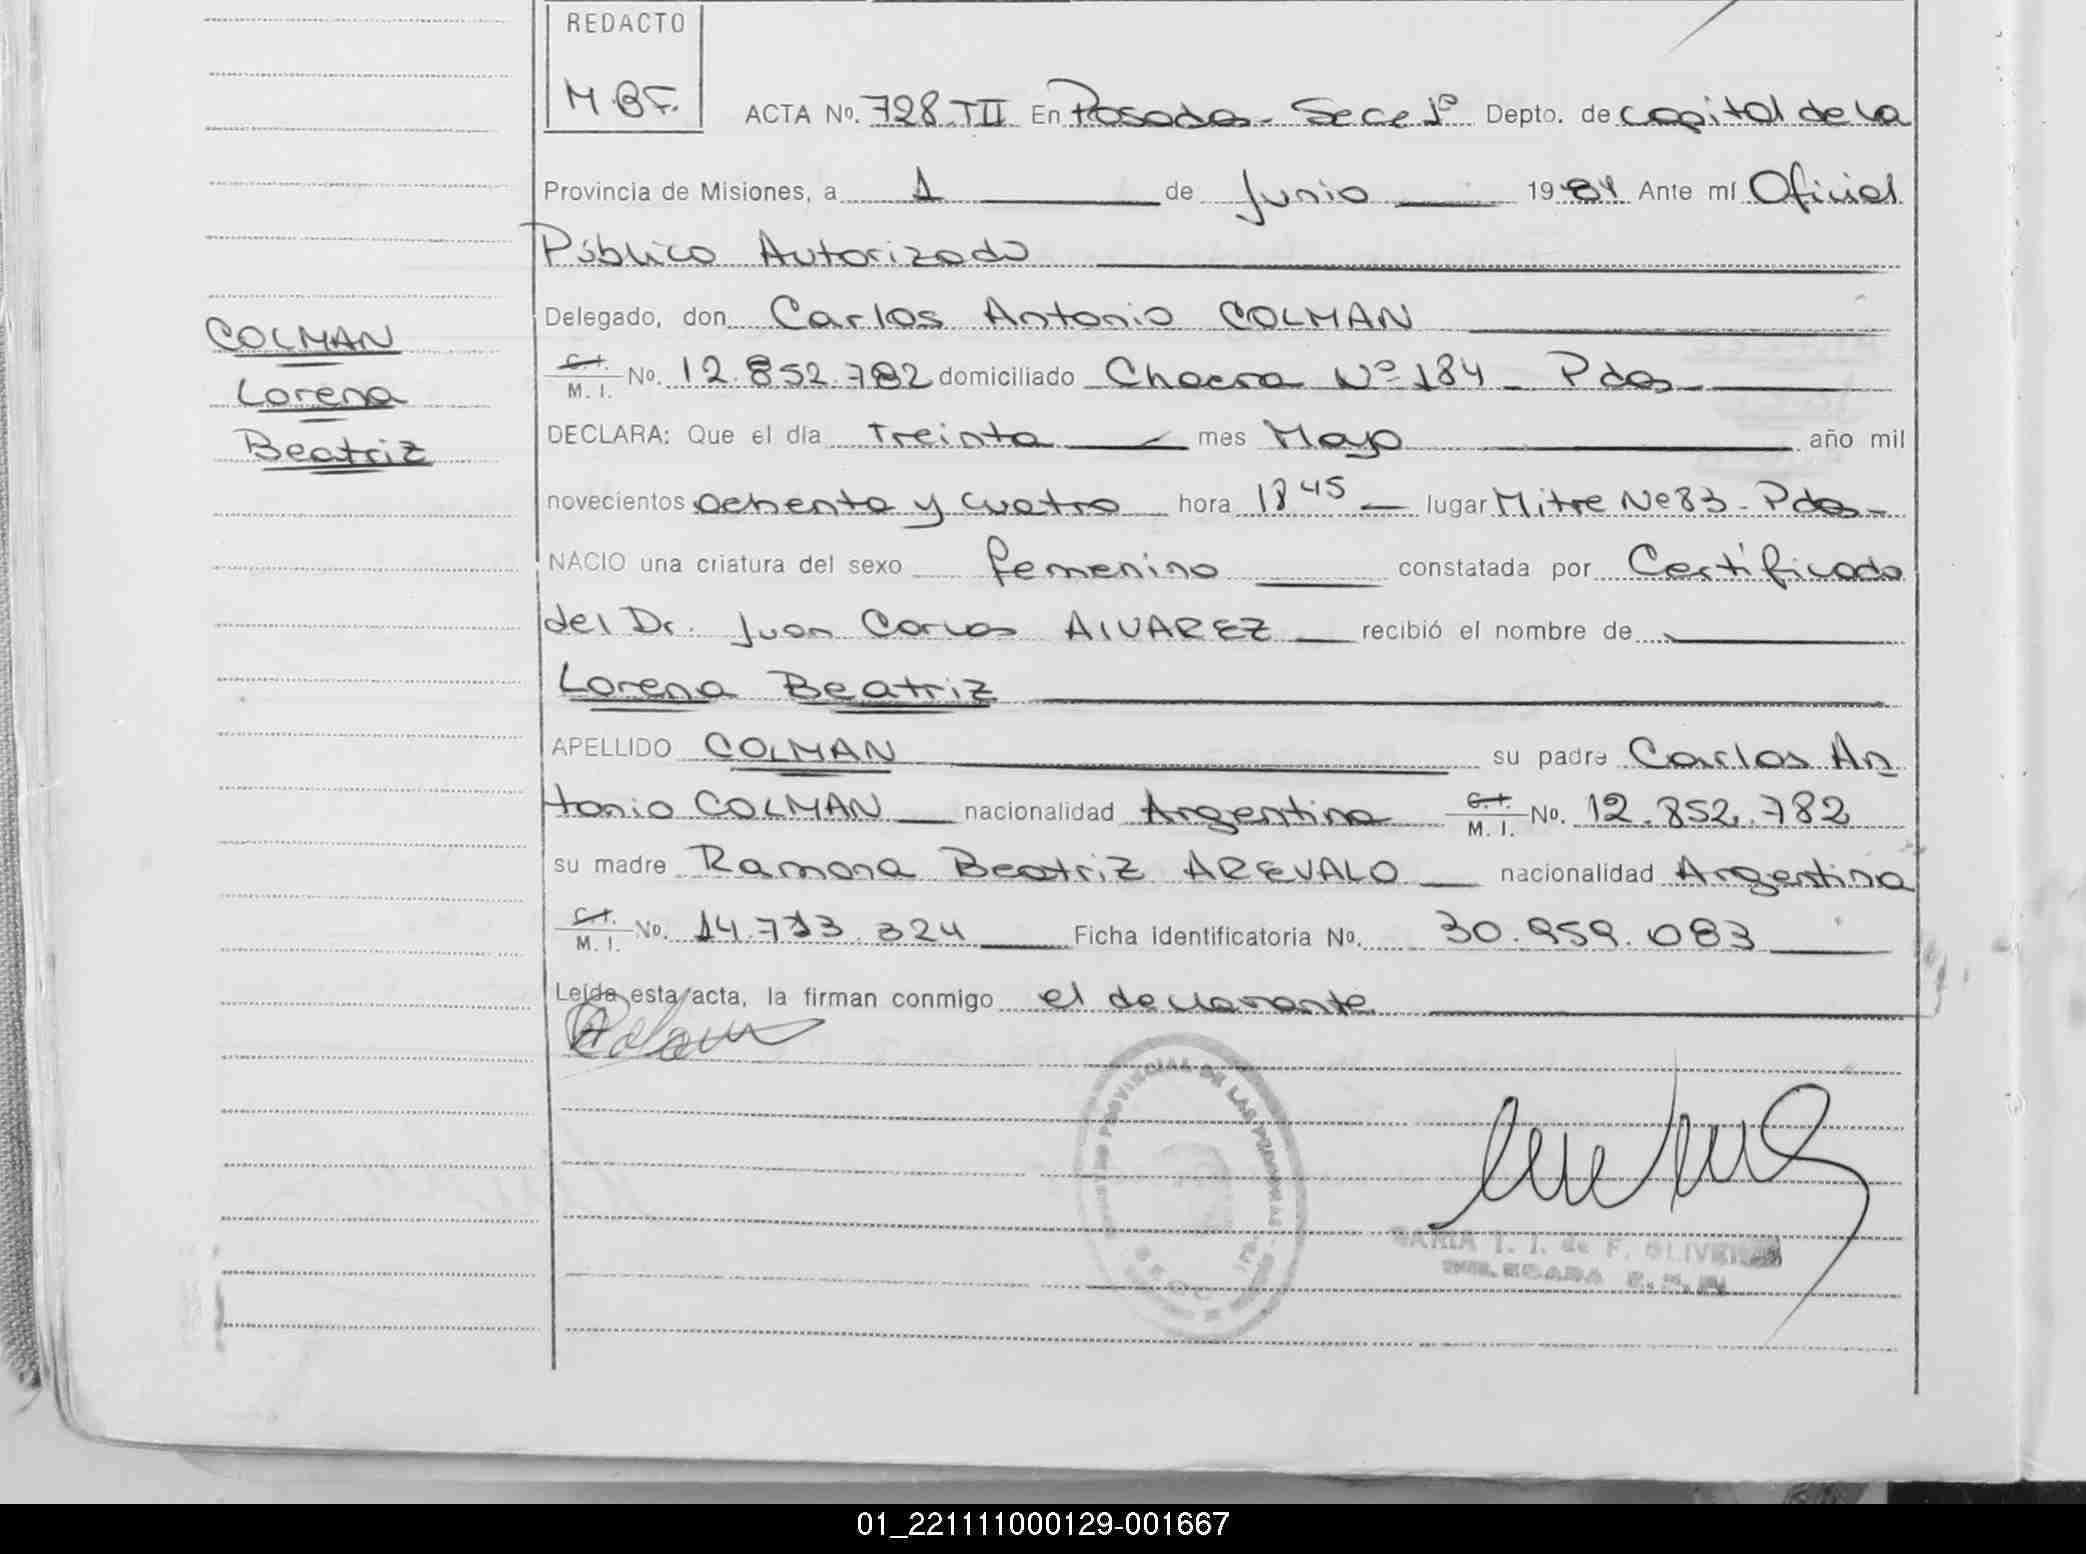 REDACTO
M.B.F.
ACTA No. 728.TII En Posadas - Secc 1º Depto. de capital de la
Provincia de Misiones, a 1 de Junio 1984 Ante mí Oficial
Público Autorizado
Delegado, don Carlos Antonio COLMAN
C.I.
M.I. No. 12.852.782 domiciliado Chacra Nº 184 - Pdas -
DECLARA: Que el día treinta mes Mayo año mil
novecientos ochenta y cuatro hora 18 45 lugar Mitre Nº 83 - Pdas -
NACIO una criatura del sexo femenino constatada por Certificado
del Dr. Juan Carlos AlVAREZ recibió el nombre de
Lorena Beatriz
APELLIDO COLMAN su padre Carlos An
tonio COLMAN nacionalidad Argentina C.I.
M.I. No. 12.852.782
su madre Ramona Beatriz AREVALO nacionalidad Argentina
C.I.
M.I. No. 14.713.324 Ficha identificatoria No. 30.959.083
Leída esta acta, la firman conmigo el declarante
COLMAN
Lorena
Beatriz
PROVINCIAL DE LAS PERSONAS
I. I. de F. OLIVERA
DELEGADA
01_221111000129-001667